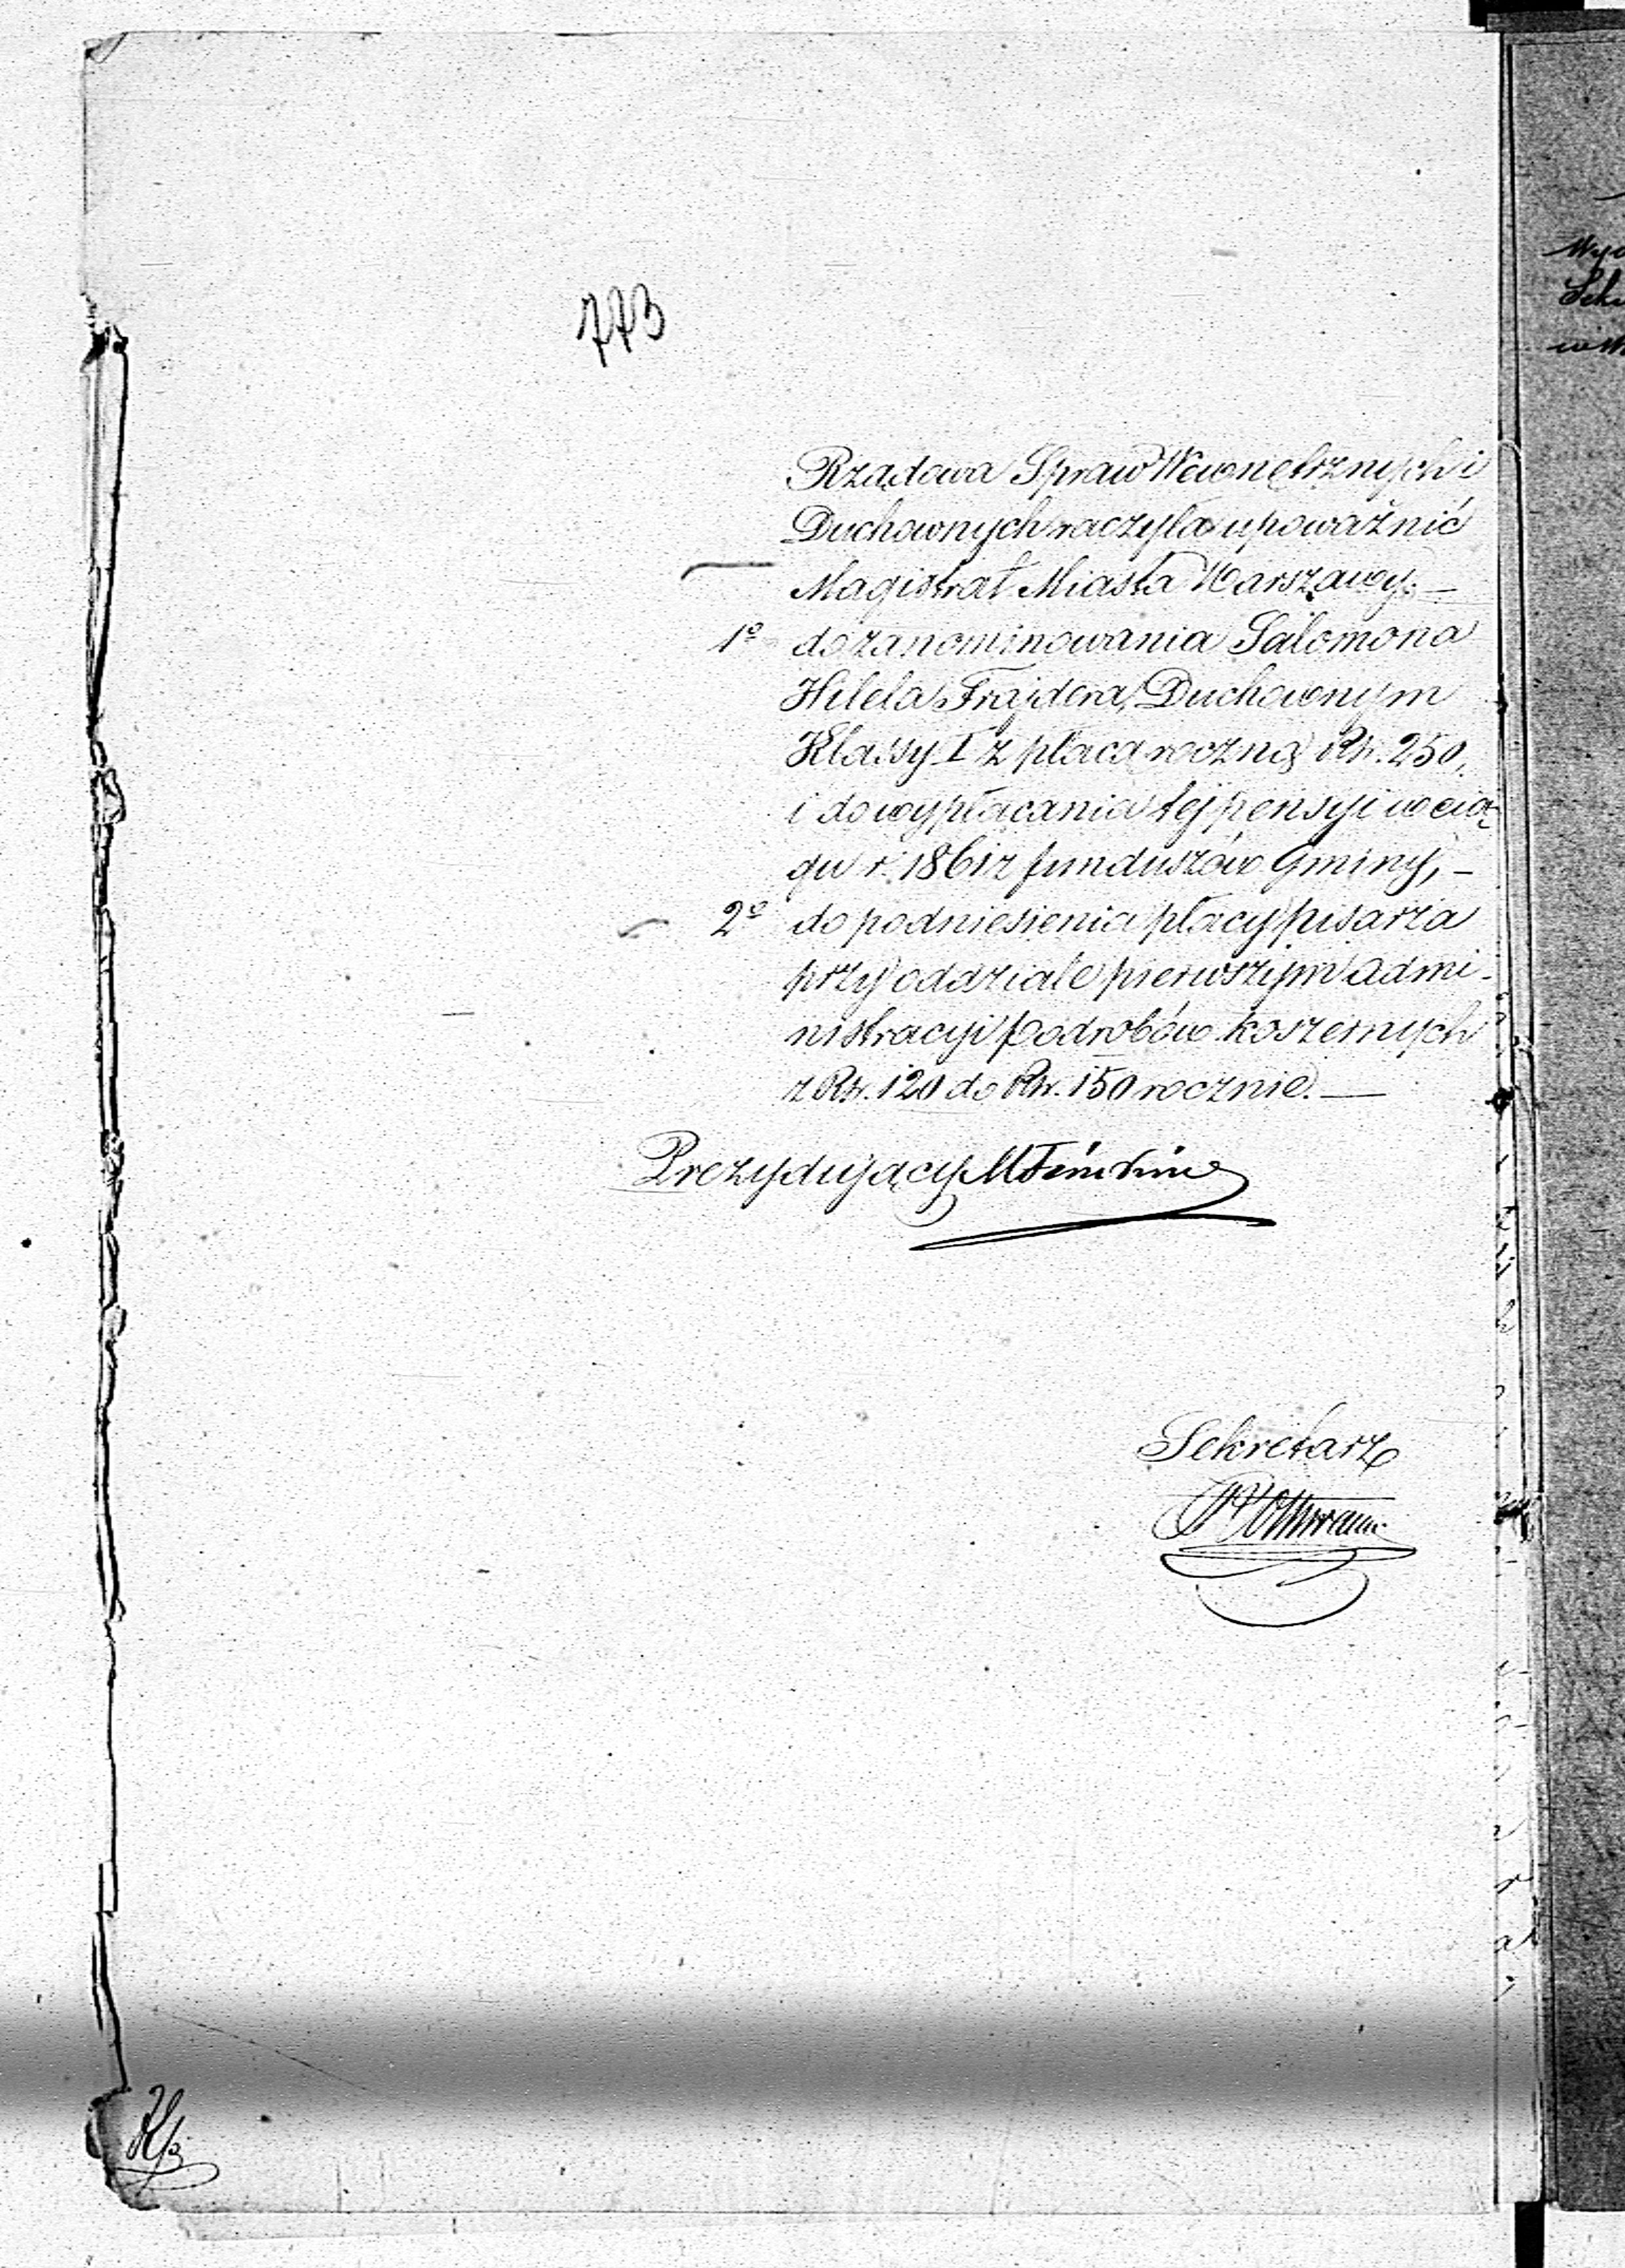 773
Rządowa Spraw Wewnętrznych i
Duchownych raczyła upoważnić
Magistrat Miasta Warszawy: —
1o do zanominowania Salomona
Hilela Frajdera, Duchownym
Klassy I z płacą roczną Rsr. 250,
i do wypłacania tej pensyi w cią-
gu r. 1861 z funduszów Gminy, —
2o do podniesienia płacy pisarza
przy oddziale pierwszym Admi-
nistracyi podrobów koszernych
z Rsr. 120 do Rsr. 150 rocznie. —
Prezydujący
Sekretarz